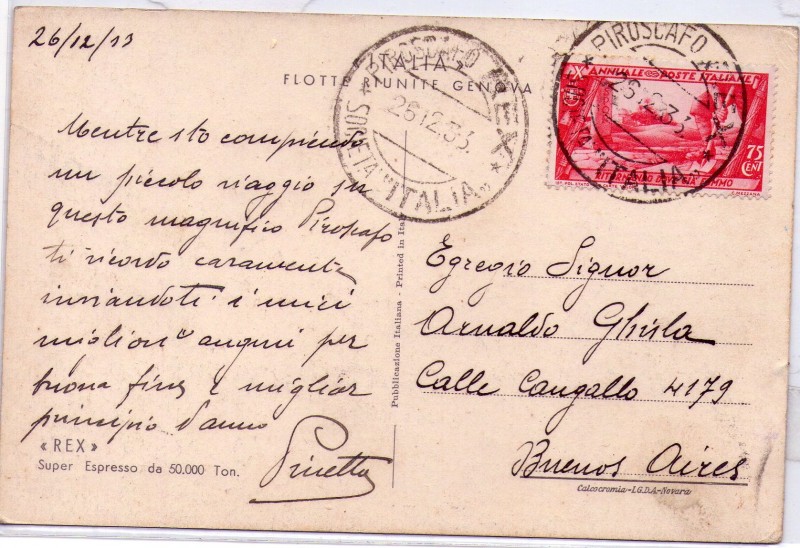 26/12/33
ITALIA
FLOTTE RIUNITE GENOVA
PIROSCAFO REX
26.12.33.
* SOCIETÀ "ITALIA" *
PIROSCAFO REX
26.12.33.
"ITALIA" *
X ANNUALE POSTE ITALIANE
75
CENT
RITORNANDO DOVE GIÀ FUMMO
Mentre sto compiendo
un piccolo viaggio su
questo magnifico Piroscafo
ti ricordo caramente
inviandoti i miei
migliori auguri per
buona fine e miglior
principio d'anno
Pinetta
« REX »
Super Espresso da 50.000 Ton.
Pubblicazione Italiana - Printed in Ita
Egregio Signor
Arnaldo Ghisla
Calle Cangallo 4179
Buenos Aires
Calcocromia-I.G.D.A-Novara